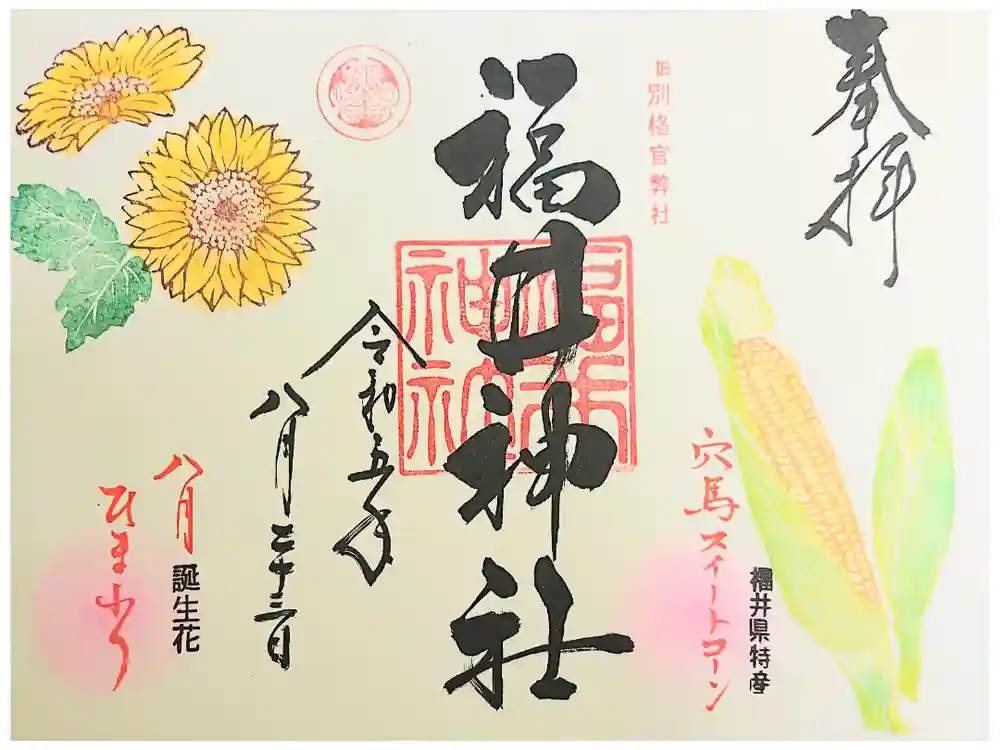 奉拝
福井県特産
穴馬スイートコーン
旧別格官弊社
福井神社
福井神社
令和五年
八月二十三日
八月
誕生花
ひまわり